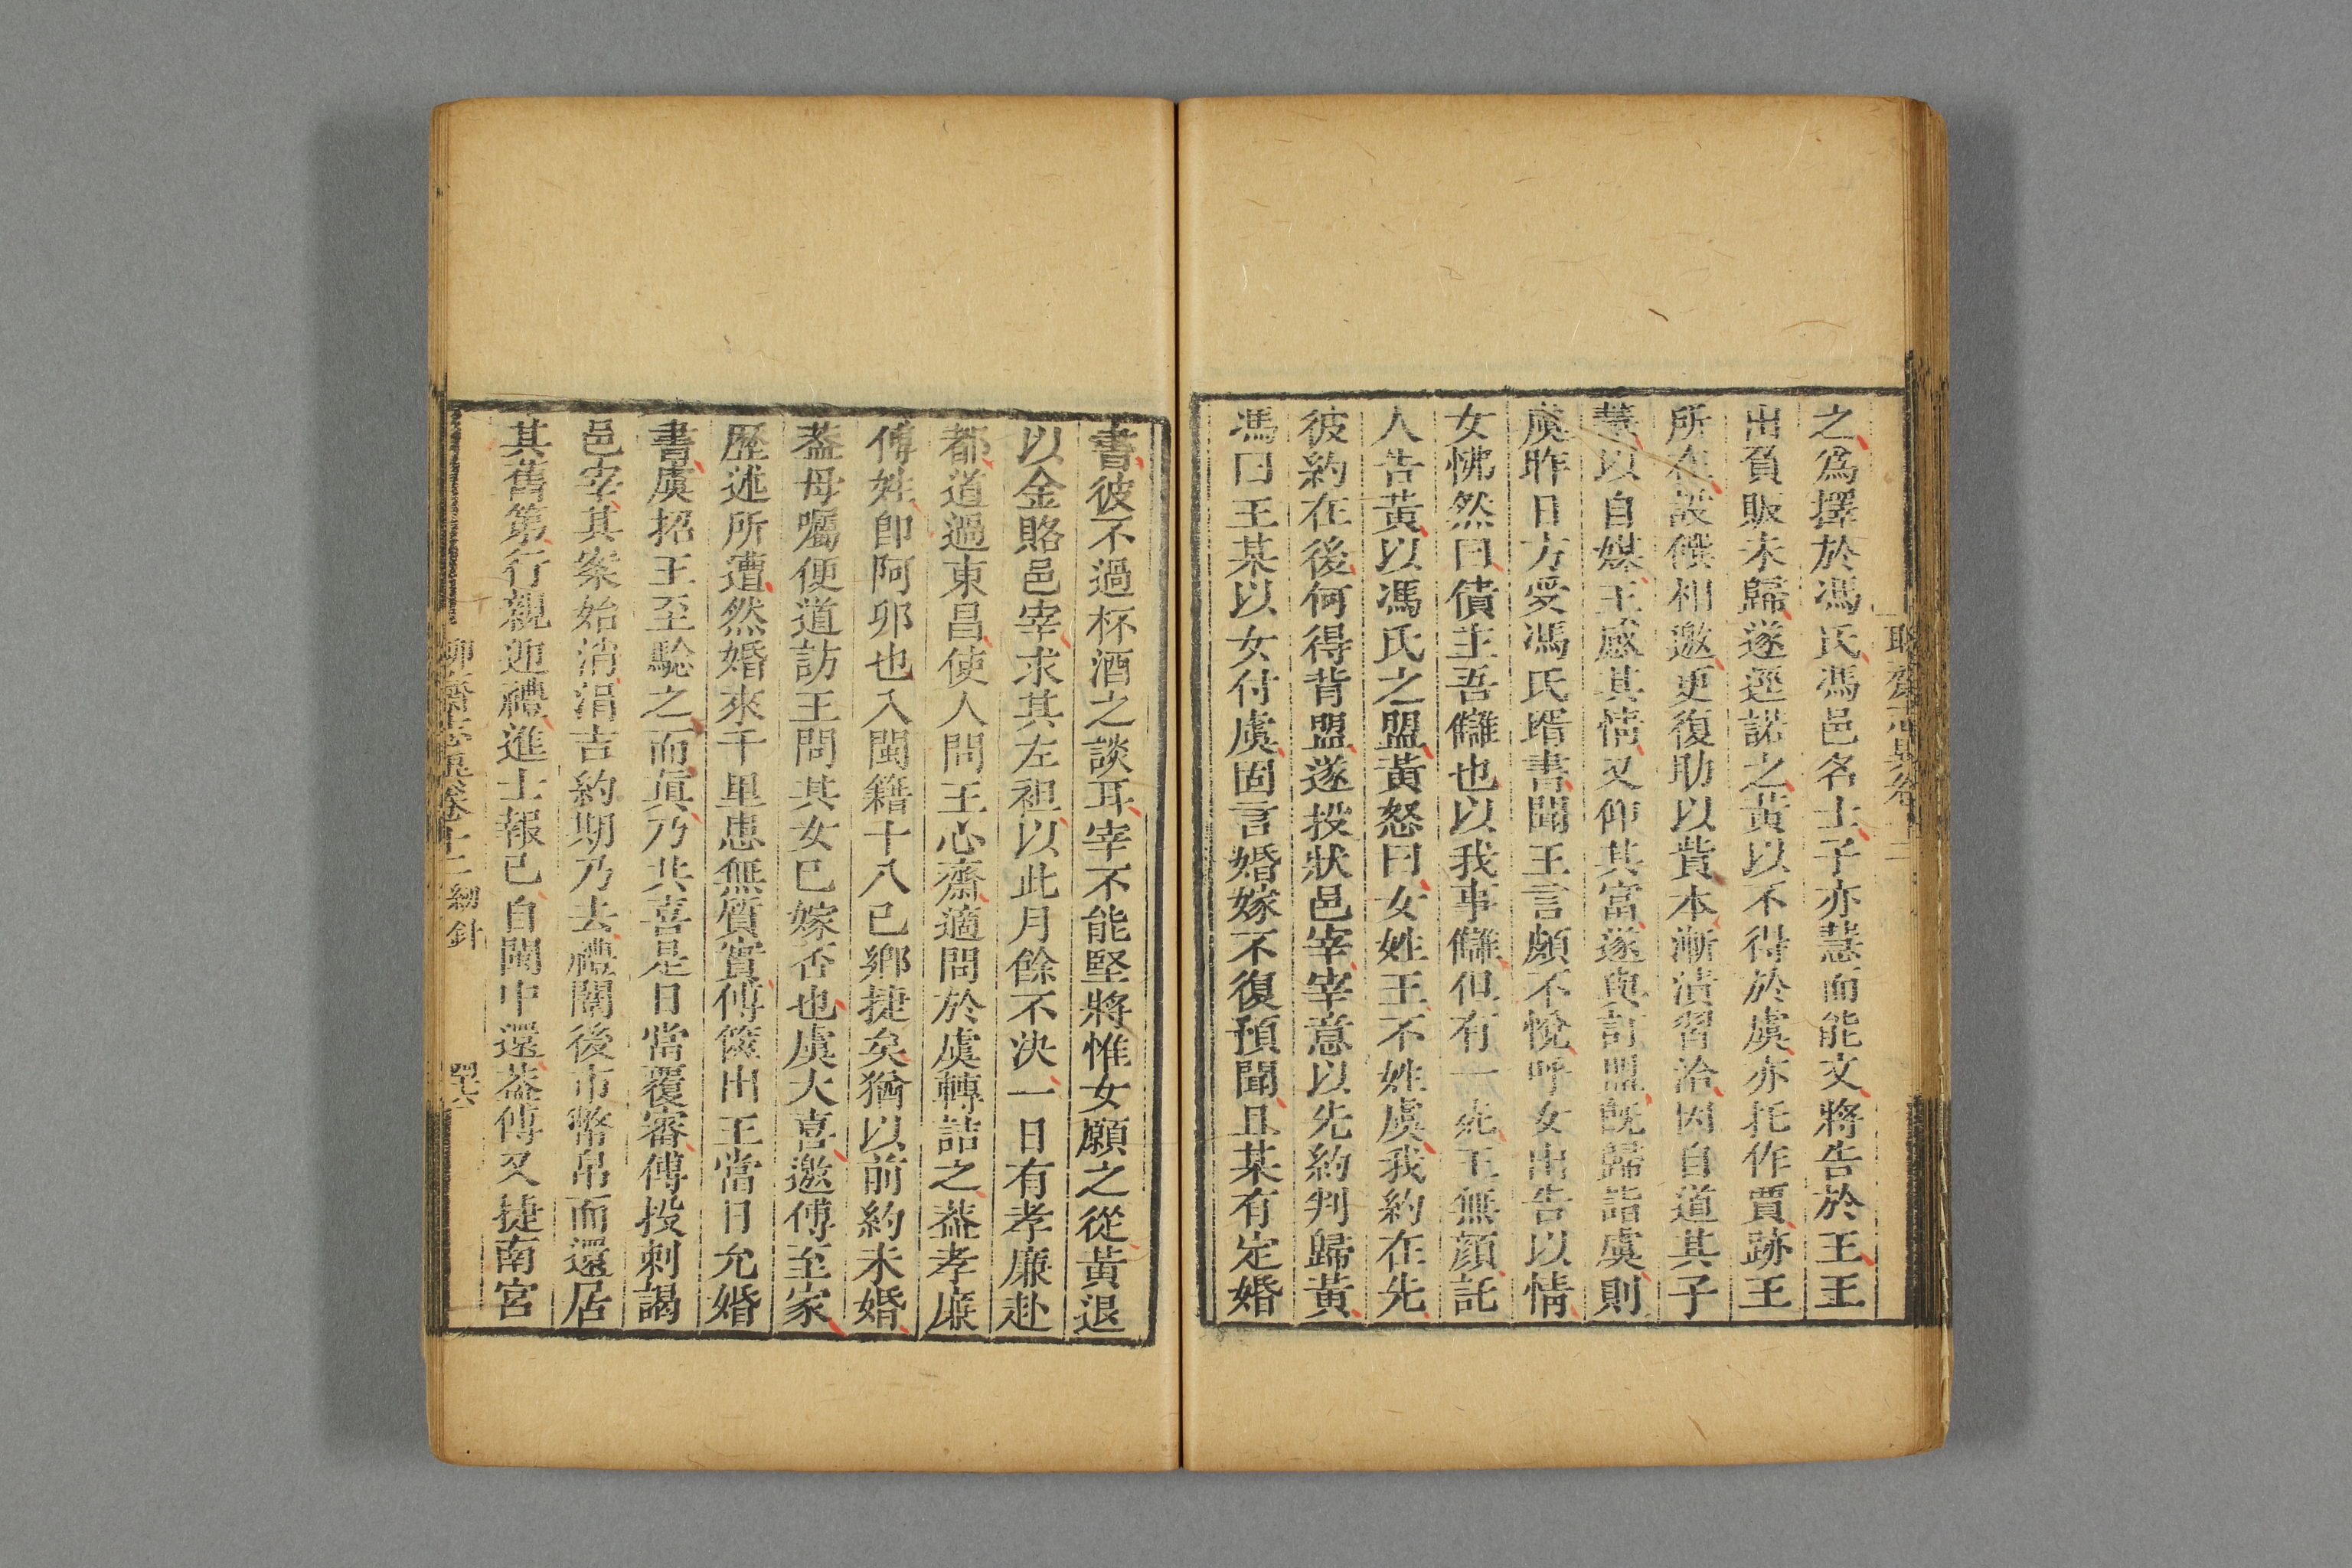 之為擇於馮氏馮邑名士子亦慧而能文將告於王王
出負販未歸遂逕諾之黃以不得於虞亦托作賈跡王
所在設饌相邀更復助以貲本漸漬習洽因自道其子
慧以自媒王感其情又仰其富遂與訂盟既歸詣虞則
虞昨日方受馮氏壻書聞王言頗不悅呼女出告以情
女怫然曰債主吾讎也以我事讎但有一死王無顏託
人告黃以馮氏之盟黃怒曰女姓王不姓虞我約在先
彼約在後何得背盟遂投狀邑宰宰意以先約判歸黃
馮曰王某以女付虞固言婚嫁不復預聞且某有定婚
書彼不過杯酒之談耳宰不能堅將惟女願之從黃退
以金賂邑宰求其左袒以此月餘不決一日有孝廉赴
都道過東昌使人問王心齋適問於虞轉詰之葢孝廉
傅姓即阿卯也入閩籍十八已鄉捷矣猶以前約未婚
葢母囑便道訪王問其女巳嫁否也虞大喜邀傅至家
歷述所遭然婚來千里患無質實傅篋出王當日允婚
書虞招王至驗之而眞乃共喜是日當覆審傅投刺謁
邑宰其案始消涓吉約期乃去禮闈後市幣帛而還居
其舊第行親迎禮進士報已自閩中還葢傅又捷南宮
聊齋志異卷十二 紉針 四六